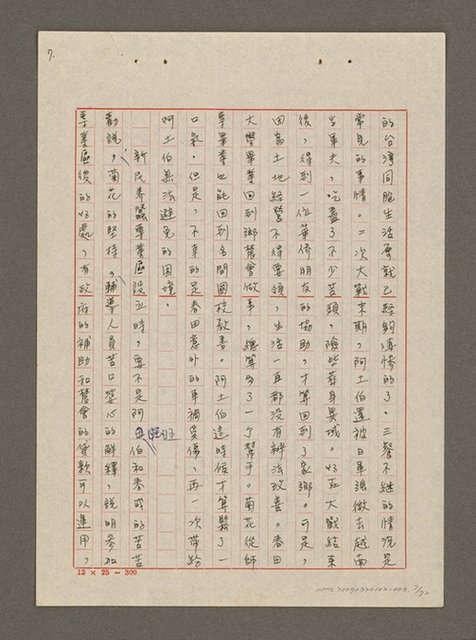 7.
的台灣同胞生活原就已經夠淒慘的了。三餐不繼的情況是
常見的事情。二次大戰末期,阿土伯還被日軍強徵去越南
當軍夫,吃盡了不少苦頭,險些葬身異域。好在大戰結束
後,得到一位華僑朋友的協助,才算回到了家鄉。可是,
田家土地經營不得要領,生活一直都沒有辦法改善。春田
大學畢業回到鄉農會做事,總算多了一個幫手。菊花從師
專畢業也能回到名間國校教書。阿土伯這時候才算鬆了一
口氣。但是,不幸的是春田意外的車禍受傷,再一次帶給
阿土伯無法避免的困境。
新民養蠶專業區設立時,要不是阿旺伯和春成的苦苦
勸說,菊花的堅持。輔導人員苦口婆心的解釋,說明參加
專業區後的好處,有政府的補助和農會的貸款可以運用,
12 × 25 = 300